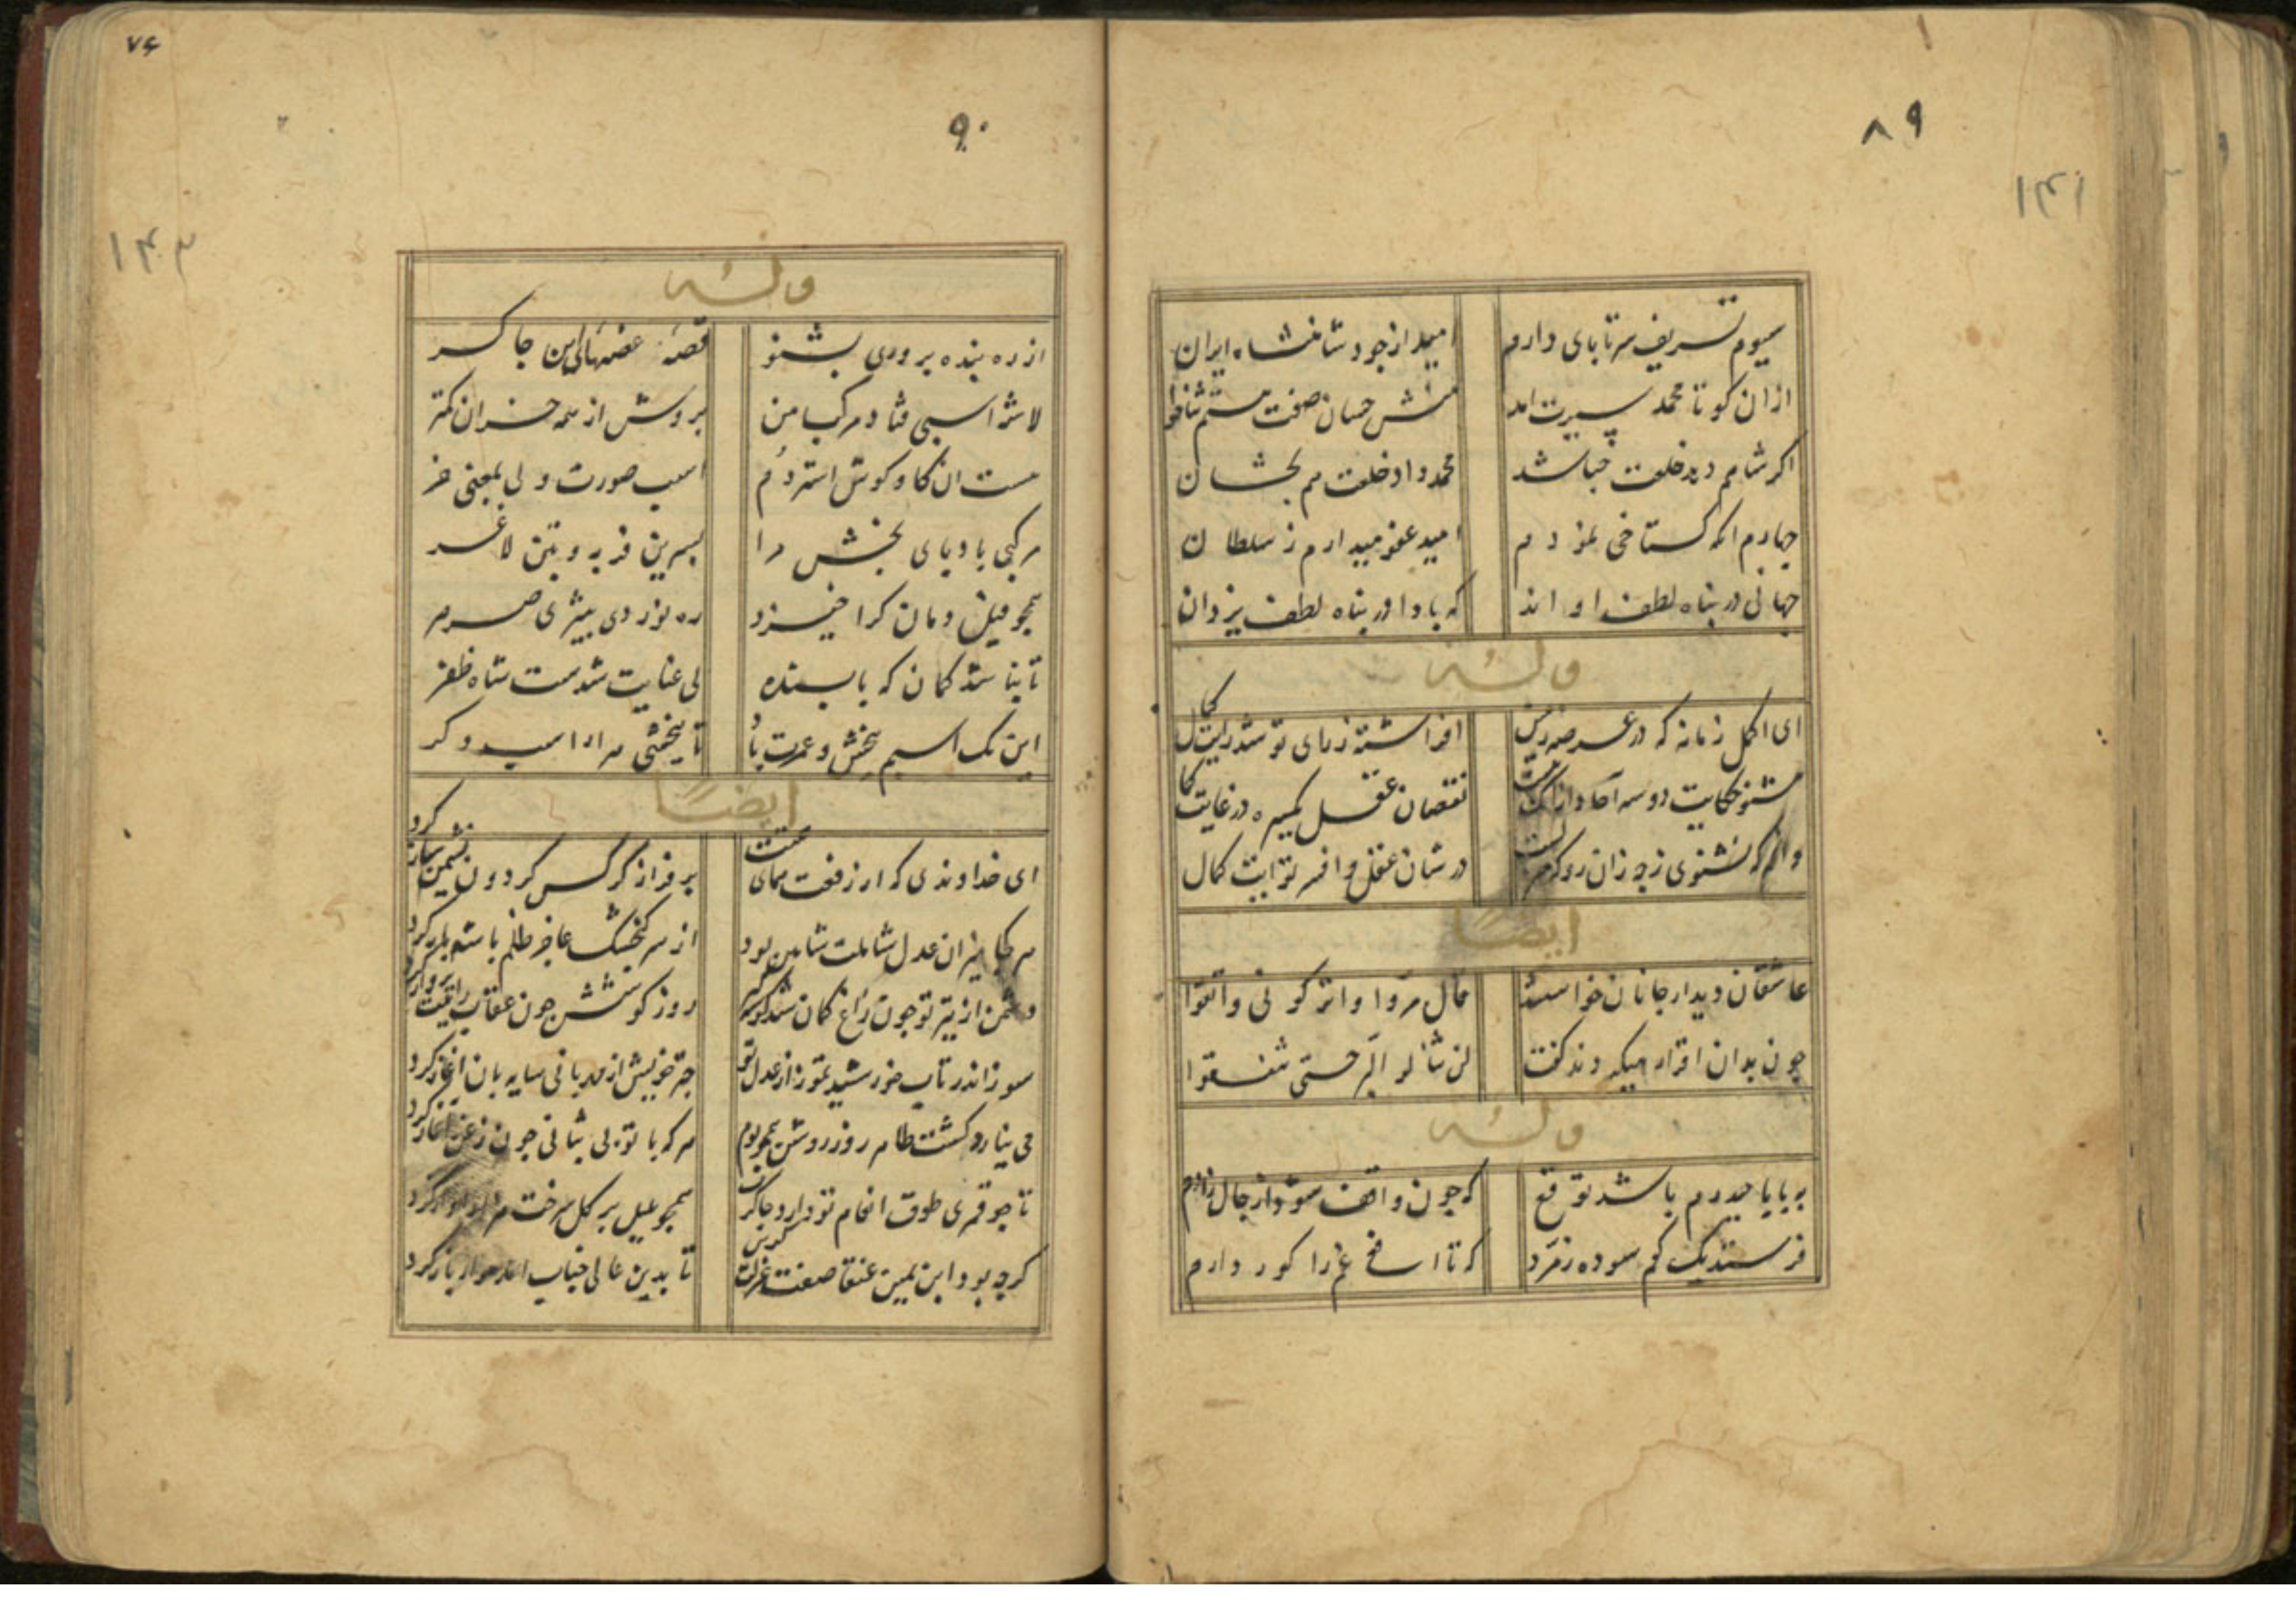 ۸۹
۱۴۱
سیوم تشریف سرتابای دارم امید از جود شاهنشاه ایران
ازان کو تا محمد سیرت امد منش حسان صفت هستم ثناخوا
اکر شاهم دهد خلعت خباشد محمد داد خلعت هم بحسان
جهارم انکه کستاخی نمودم امید عفو میدارم ز سلطان
جهانی در بناه لطف او اند که بادا در بناه لطف یزدان
وله
ای اکمل زمانه که در عرصه زمین افراشته ز رای تو شد رایت کمال
مشنو حکایت دوسه نقصان عقل در غایت
وانهم که نشنوی زجه زان رو که در شان عقل وافر تو ایت کمال
ایضا
عاشقان دیدار جانان خواستند قال مروا واترکونی واتقوا
جون بدان اقرار میکردند کفت لن تنالوا البر حتی تنفقوا
وله
به بابا حیدرم باشد توقع که جون واقف شود از حال زارم
فرستد یک کم سوده زمرد که تا اسخ غم را کور دارم
۷۶
۹۰
۱۴۲
وله
از ره بنده بروری بشنو قصه غصهای این جاکر
لاشه اسبی فتاد مرکب من بروش از همه خران کمتر
هست ان کاو کوش استر دم اسب صورت ولی بمعنی خر
مرکبی بادبای بخش مرا بسرین فربه و بتن لاغر
همجو فیل دمان کرا خیزد ره نوردی بیژی صرصر
تا نباشد کمان که با بنده بی عنایت شدست شاه ظفر
این یک اسبم ببخش و عمرت باد تا ببخشی هزار اسب دکر
ایضا
ای خداوندی که از رفعت همای همتت بر فراز کرکس کردون نشیمن ساز کرد
هر کجا میزان عدل شاملت شاهین بود از سر کنجشک عاجز ظلم باشه باز کرد
دشمن از تیر تو جون زاغ کمان شد کوشه کیر روز کوشش جون عقاب رایتت برواز کرد
سوز اندر تاب خورشید تموز از عدل تو جتر خویش از مهربانی سایه بان اغاز کرد
می نیارد کشت ظاهر روز روشن همجو بوم هر که با تو بی ثباتی جون زغن اغاز کرد
تا جو قمری طوق انعام تو دارد جاکرت همجو بلبل بر کل مرحت هزار اواز کرد
کرجه بود ابن یمین عنقا صفت عزلت کزین تا بدین عالی جناب امد باز کرد